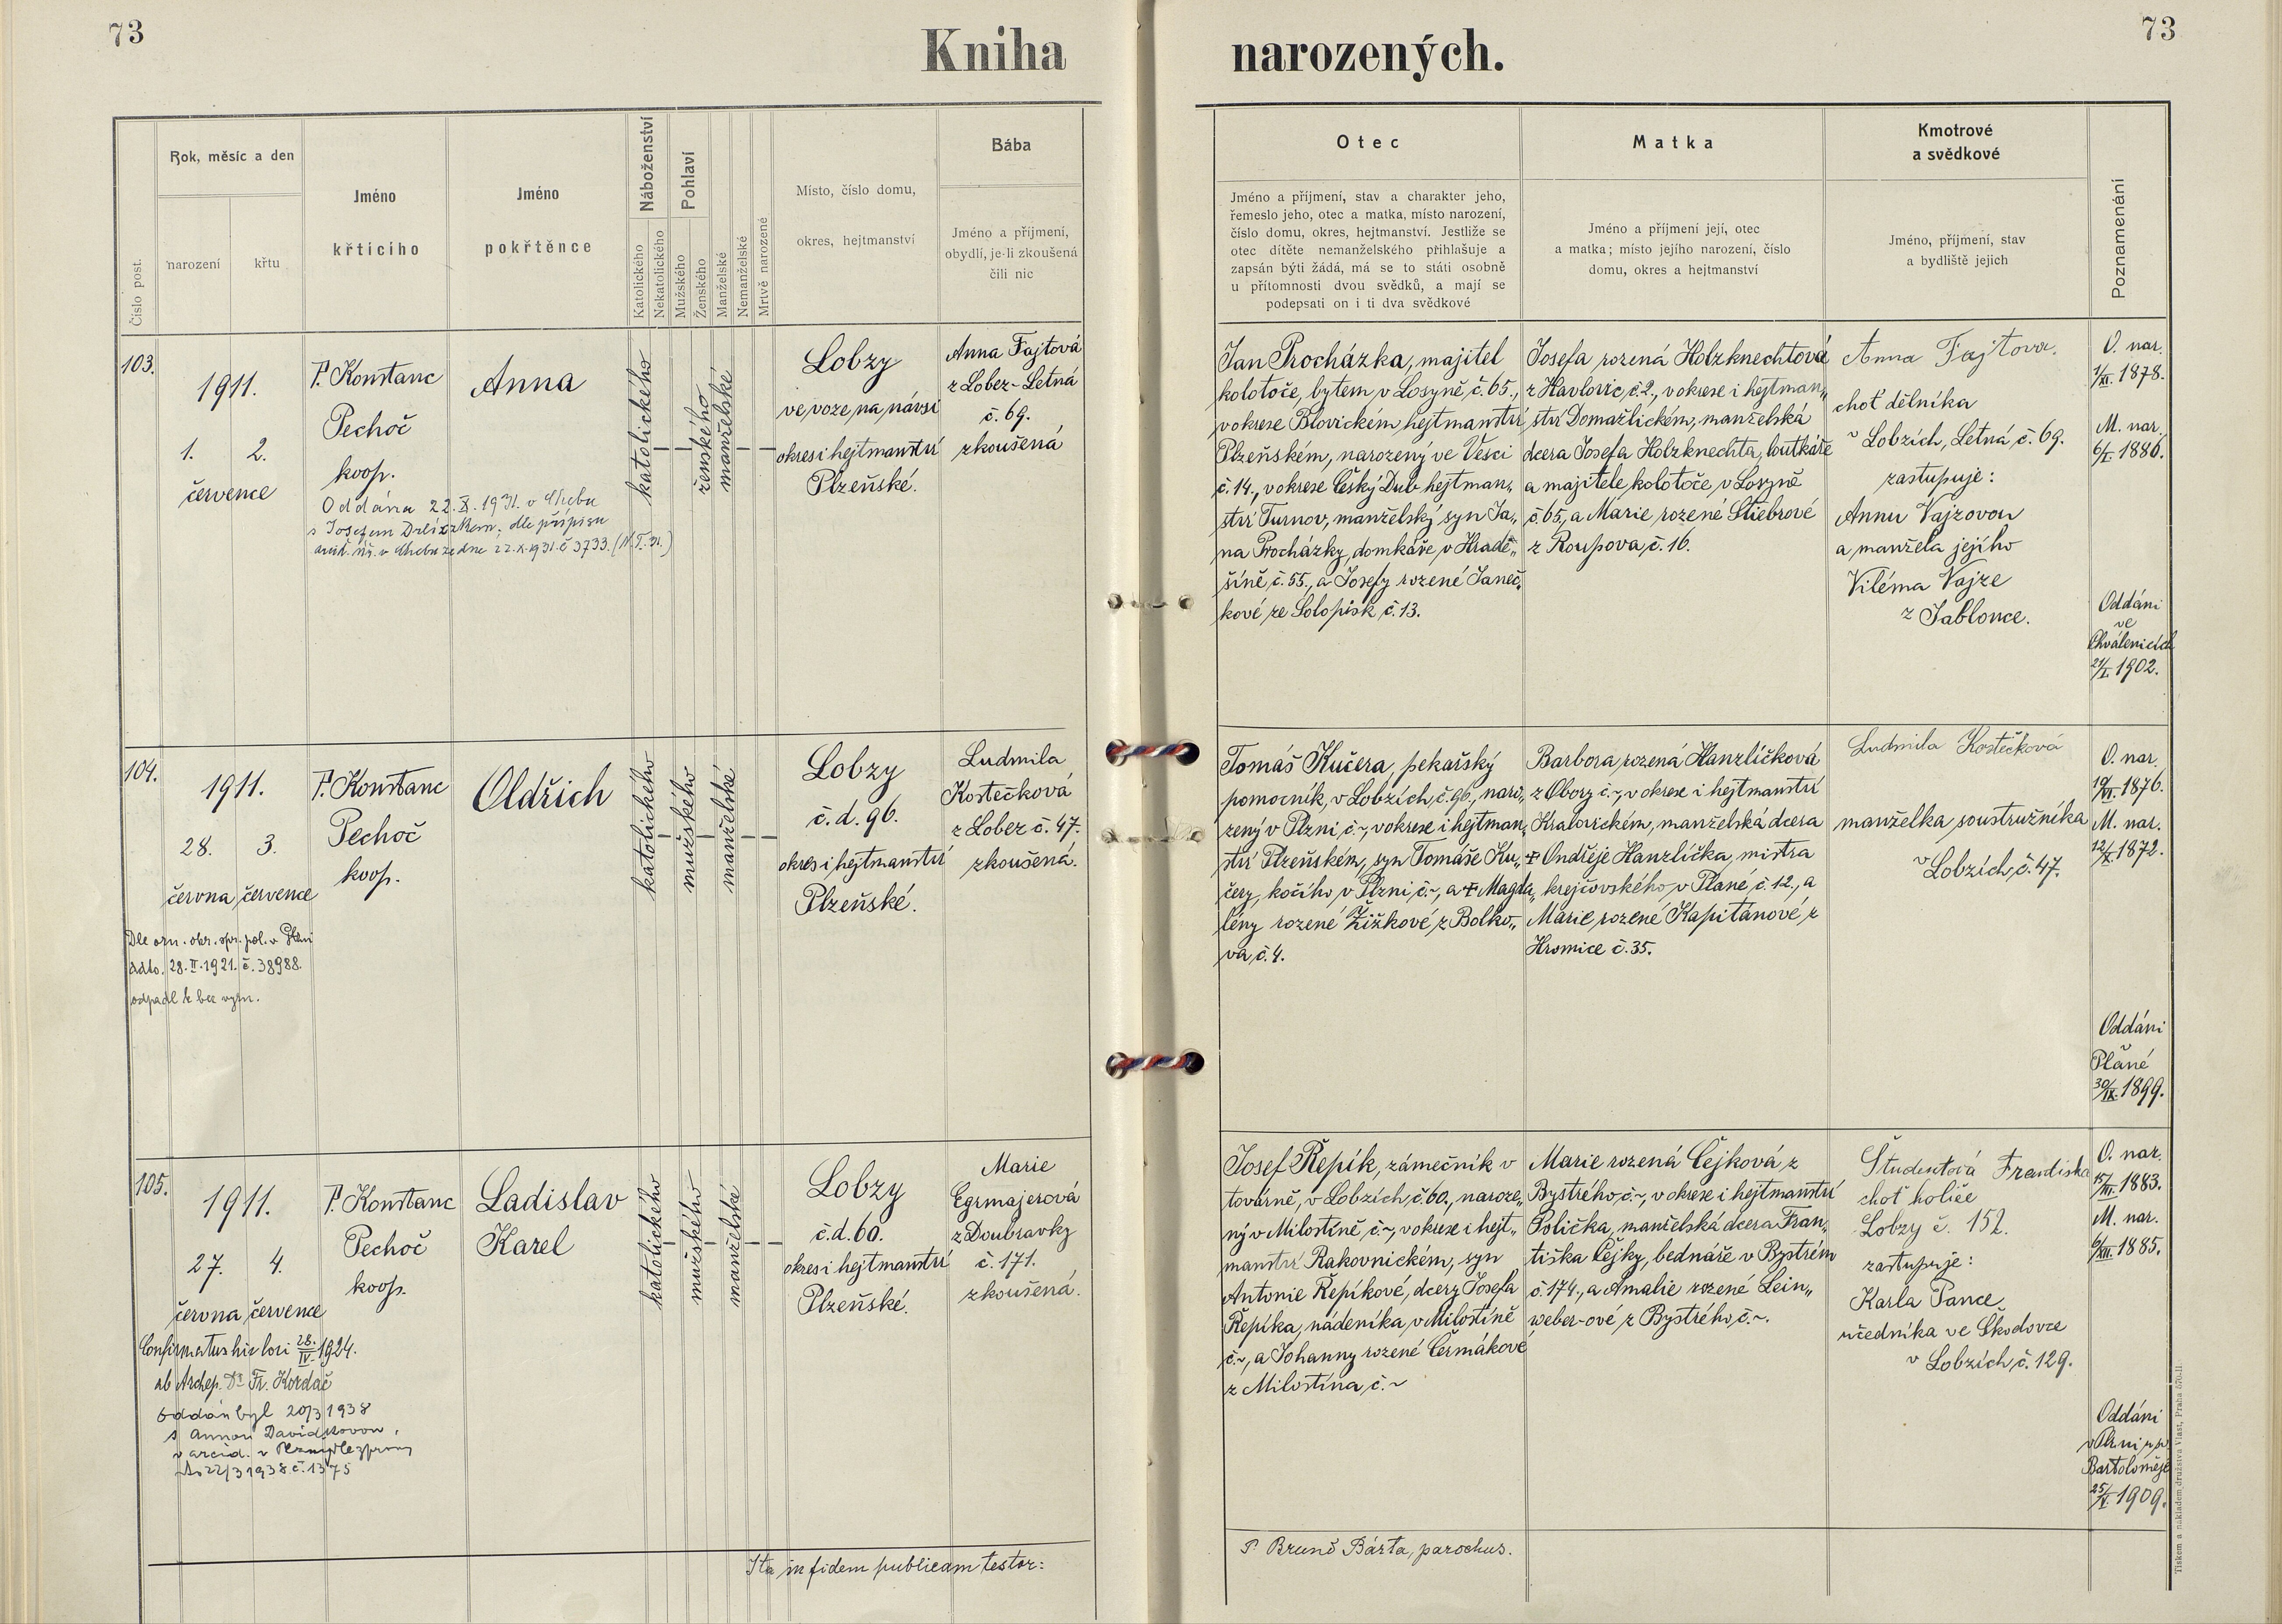 73
Kniha
narozených.
73
Číslo post.
Rok, měsíc a den
narození
křtu
Jméno
křticiho
Jméno
pokřtěnce
Náboženství
Katolického
Nekatolického
Pohlaví
Mužského
Ženského
Manželské
Nemanželské
Mrtvě narozené
Místo, číslo domu,
okres, hejtmanství
Bába
Jméno a příjmení,
obydlí, je-li zkoušená
čili nic
Otec
Jméno a příjmení, stav a charakter jeho,
řemeslo jeho, otec a matka, místo narození,
číslo domu, okres, hejtmanství. Jestliže se
otec dítěte nemanželského přihlašuje a
zapsán býti žádá, má se to státi osobně
u přítomnosti dvou svědků, a mají se
podepsati on i ti dva svědkové
Matka
Jméno a příjmení její, otec
a matka; místo jejího narození, číslo
domu, okres a hejtmanství
Kmotrové
a svědkové
Jméno, příjmení, stav
a bydliště jejich
Poznamenání
103.
1911.
1. 2.
července
P. Konstanc
Pechoč
koop.
Oddána 22.X.1931. v Chebu
s Josefem
dle přípisu
v Chebu ze dne 22.X.1931. č 3733.
Anna
katolického
ženského
manželské
Lobzy
ve voze, na návsi
okres i hejtmanství
Plzeňské.
Anna Fajtová
z Lobez-Letná
č. 69.
zkoušená
Jan Procházka, majitel
kolotoče, bytem v Losyně č. 65.,
v okrese Blovickém, hejtmanství
Plzeňském, narozený ve Vesci
č. 14., v okrese Český Dub hejtman„
ství Turnov, manželský syn Ja„
na Procházky, domkáře v Hradě„
šíně, č. 55., a Josefy rozené Janeč„
kové ze Solopisk č. 13.
Josefa rozená Holzknechtová
z Havlovic č. 2., v okrese i hejtman„
ství Domažlickém, manželská
dcera Josefa Holzknechta, loutkáře
a majitele kolotoče, v Losyně
č. 65., a Marie rozené Stiebrové
z Roupova, č. 16.
Anna Fajtova.
choť dělníka
v Lobzích, Letná, č. 69.
zastupuje:
Annu Vajzovou
a manžela jejího
Viléma Vajze
z Jablonce.
O. nar.
1/XI. 1878.
M. nar.
6/I. 1886.
Oddáni
ve
Chválenicích
21/I. 1902.
104.
1911.
28. 3.
června července
28. II. 1921. č. 38988.
odpadl k bez vyzn.
P. Konstanc
Pechoč
koop.
Oldřich
katolického
mužského
manželské
Lobzy
č. d. 96.
okres i hejtmanství
Plzeňské.
Ludmila
Kostečková
z Lobez č. 47.
zkoušená.
Tomáš Kučera, pekařský
pomocník, v Lobzích, č. 96., naro„
zený v Plzni č. ~, v okrese i hejtman„
ství Plzeňském, syn Tomáše Ku„
čery, kočího v Plzni č. ~, a ✝ Magda„
lény rozené Žižkové z Bolko„
va, č. 4.
Barbora, rozená Hanzlíčková
z Obory č. ~, v okrese i hejtmanství
Kralovickém, manželská dcera
✝ Ondřeje Hanzlíčka, mistra
krejčovského, v Plané, č. 12., a
Marie rozené Kapitánové z
Hromice č. 35.
Ludmila Kostečková
manželka soustružníka
v Lobzích, č. 47.
O. nar.
1876.
M. nar.
12/X. 1872.
Oddáni
v
Plané
30/IX. 1899.
105.
1911.
27. 4.
června července
28./IV. 1924.
ab Archep. Dr Fr. Kordač
Oddán byl 20/3 1938
s Annou Davidkovou,
22/3 1938 č. 1375
P. Konstanc
Pechoč
koop.
Ladislav
Karel
katolického
mužského
manželské
Lobzy
č. d. 60.
okres i hejtmanství
Plzeňské.
Marie
Egrmajerová
z Doubravky
č. 171.
zkoušená.
Josef Řepík, zámečník v
továrně, v Lobzích, č. 60., naroze„
ný v Milostíně č. ~, v okrese i hejt„
manství Rakovnickém, syn
Antonie Řepíkové, dcery Josefa
Řepíka, nádeníka v Milostíně
č. ~, a Johanny rozené Čermákové
z Milostína, č. ~
Marie rozená Čejková z
Bystrého, č. ~, v okrese i hejtmanství
Polička, manželská dcera Fran„
tiška Čejky, bednáře v Bystrém
č. 174., a Amalie rozené Lein„
weber-ové z Bystrého, č. ~.
Študentová Frantiska
choť holiče
Lobzy č. 152.
zastupuje:
Karla Pance
úředníka ve Škodovce
v Lobzích, č. 129.
O. nar.
1883.
M. nar.
6/XII. 1885.
Oddáni
v Plzni u sv.
Bartoloměje
1909.
Ita in fidem publicam testor:
P. Bruno Bárta, parochus.
Tiskem a nákladem družstva Vlast, Praha 570-II.